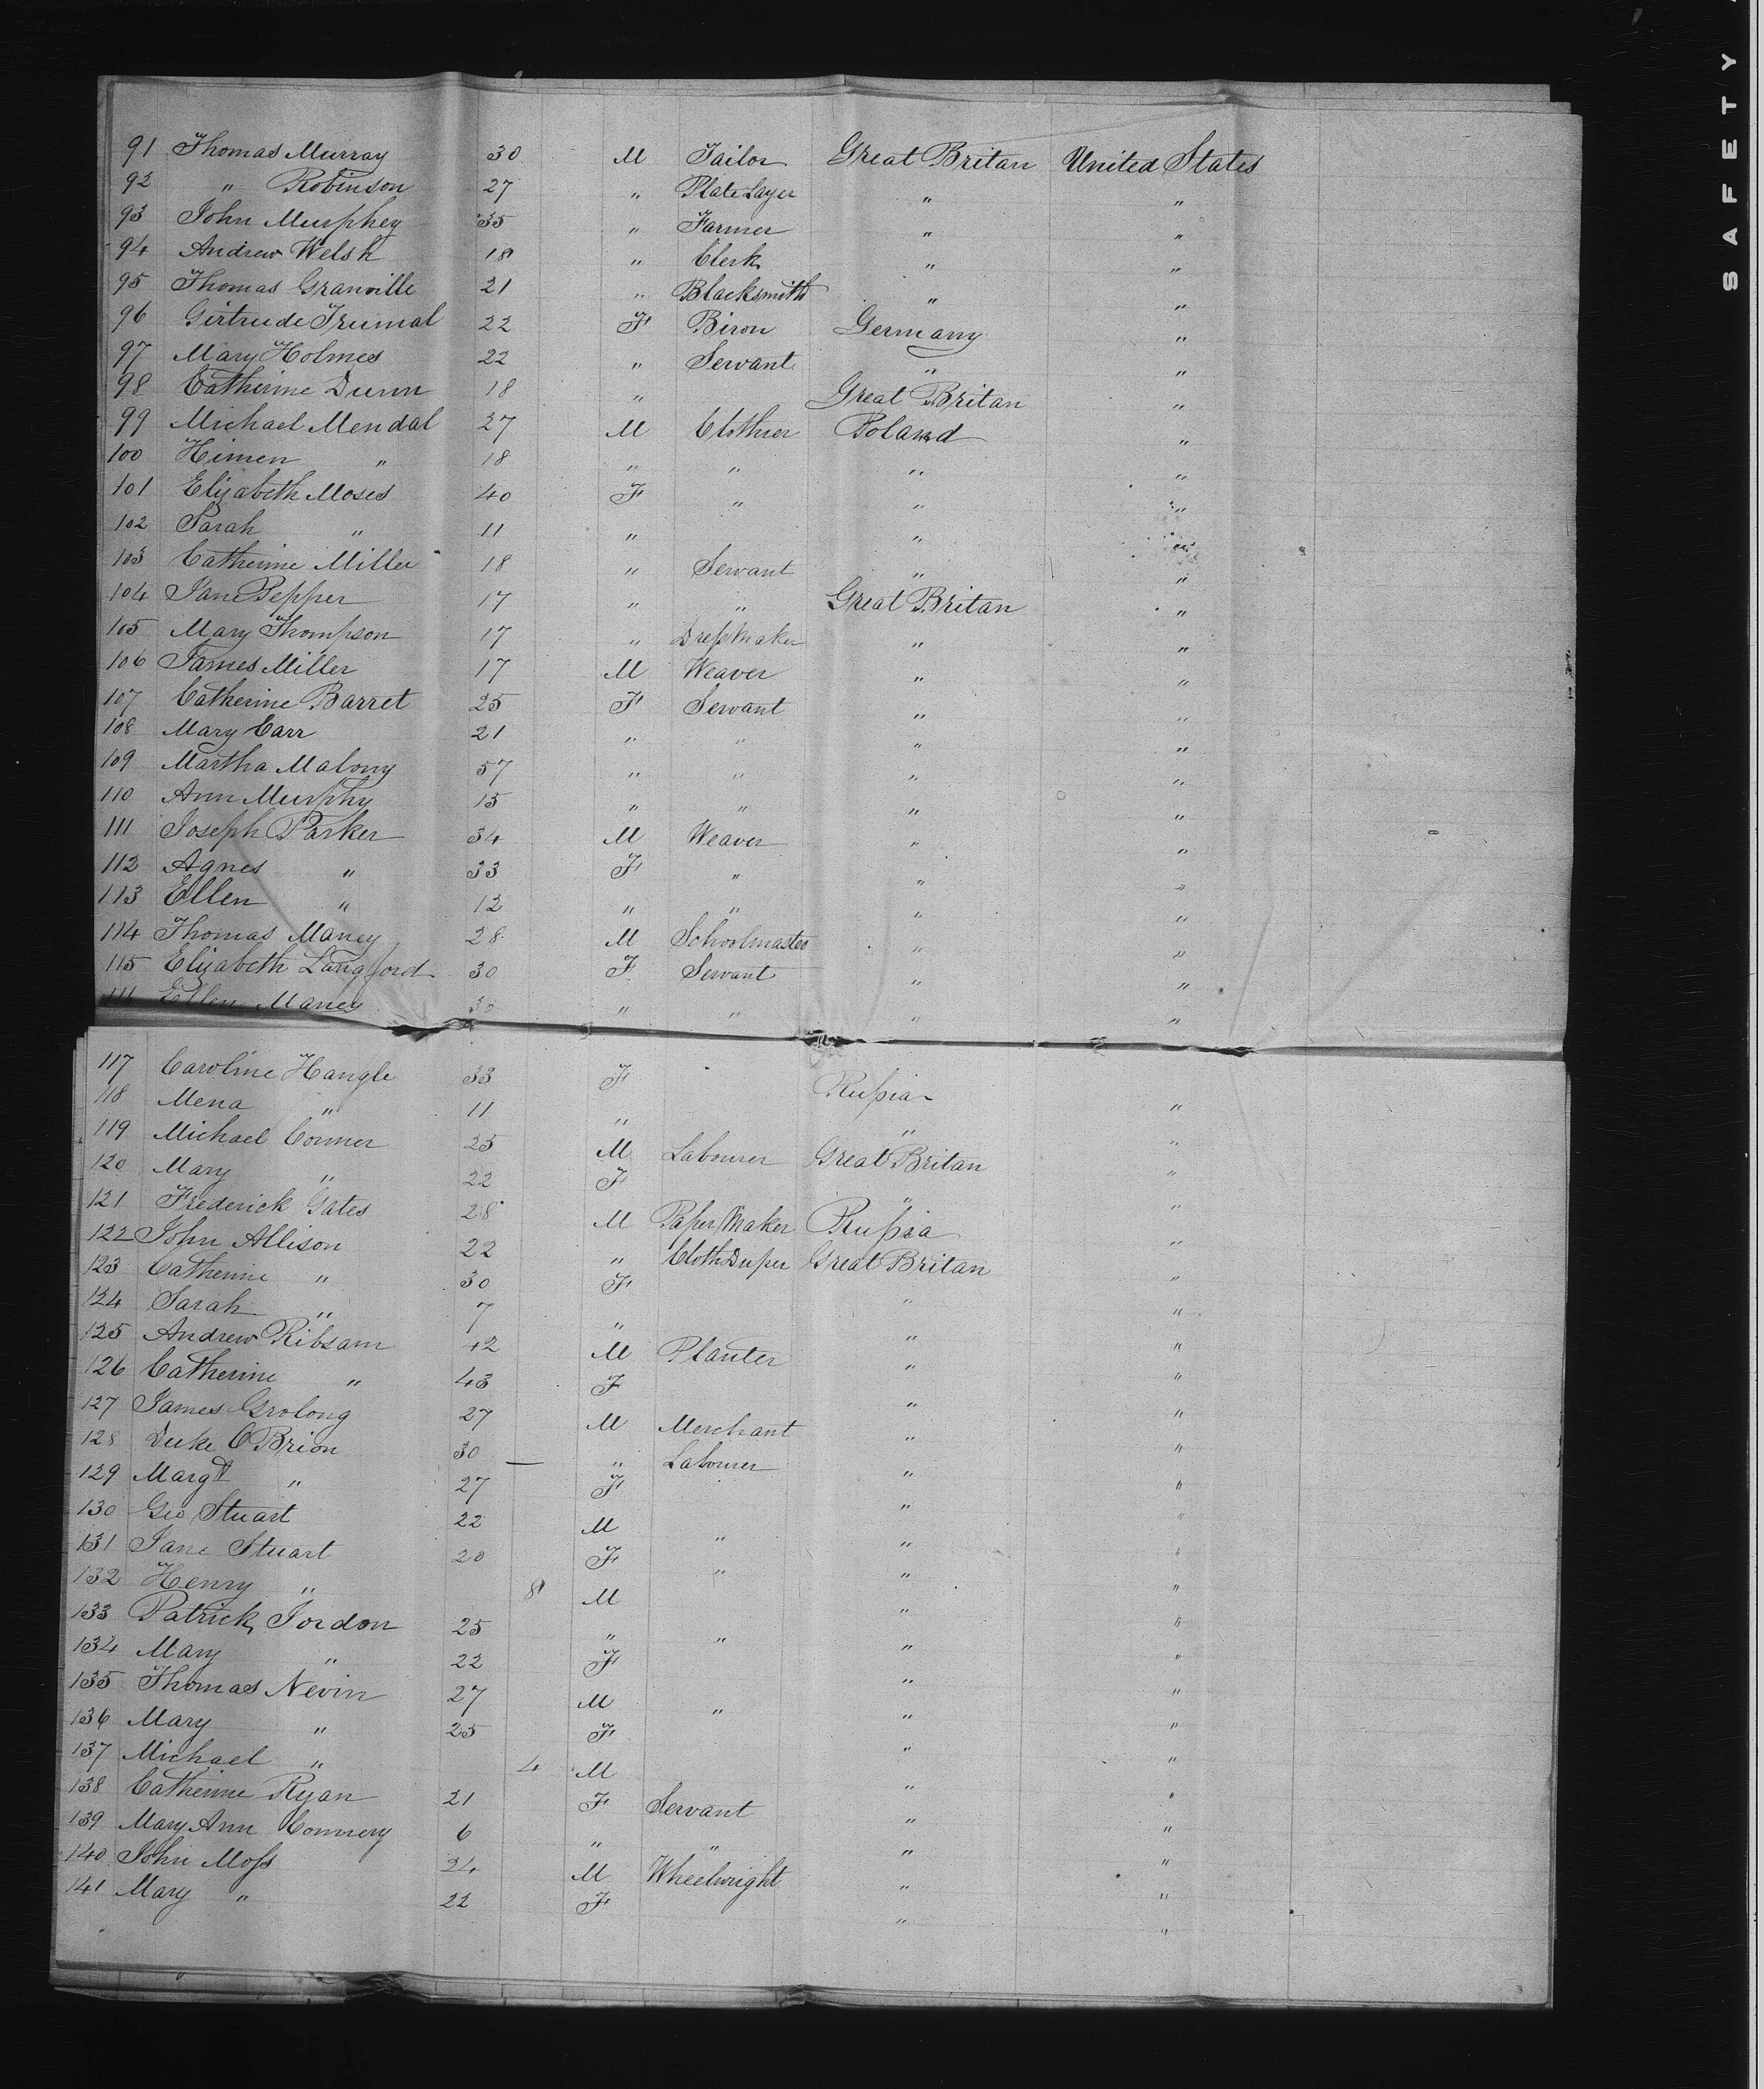 91 Thomas Murray 30 M Tailor Great Britan United States
92 " Robinson 27 " Plate Layer " "
93 John Murphey 35 " Farmer " "
94 Andrew Welsh 18 " Clerk " "
95 Thomas Granville 21 " Blacksmith " "
96 Girtrude Trumal 22 F Biron Germany "
97 Mary Holmes 22 " Servant " "
98 Catherine Dunn 18 " Great Britan "
99 Michael Mendal 27 M Clothier Poland "
100 Himen " 18 " " " "
101 Elizabeth Moses 40 F " " "
102 Sarah " 11 " " "
103 Catherine Miller 18 " Servant " "
104 Jane Pepper 17 " " Great Britan "
105 Mary Thompson 17 " Dressmaker " "
106 James Miller 17 M Weaver " "
107 Catherine Barret 25 F Servant " "
108 Mary Carr 21 " " " "
109 Martha Malony 57 " " " "
110 Ann Murphy 15 " " " "
111 Joseph Parker 34 M Weaver " "
112 Agnes " 33 F " " "
113 Ellen " 12 " " " "
114 Thomas Maney 28 M Schoolmaster " "
115 Elizabeth Langford 30 F Servant " "
116 Ellen Maney 30 " " " "
117 Caroline Hangle 33 F Russia "
118 Mena " 11 " " "
119 Michael Conner 25 M Labourer Great Britan "
120 Mary " 22 F " "
121 Frederick Gates 28 M Paper Maker Russia "
122 John Allison 22 " Cloth Great Britan "
123 Catherine " 30 F " "
124 Sarah " 7 " " "
125 Andrew Ribsam 42 M Planter " "
126 Catherine " 43 F " "
127 James Grolong 27 M Merchant " "
128 Duke O'Brion 30 — " Labourer " "
129 Margt " 27 F " "
130 Geo Stuart 22 M " " "
131 Jane Stuart 20 F " " "
132 Henry " 8 M " "
133 Patrick Jordon 25 " " " "
134 Mary " 22 F " "
135 Thomas Nevin 27 M " " "
136 Mary " 25 F " "
137 Michael " 4 M " "
138 Catherine Ryan 21 F Servant " "
139 Mary Ann Connery 6 " " " "
140 John Moss 24 M Wheelwright " "
141 Mary " 22 F " "
SAFETY